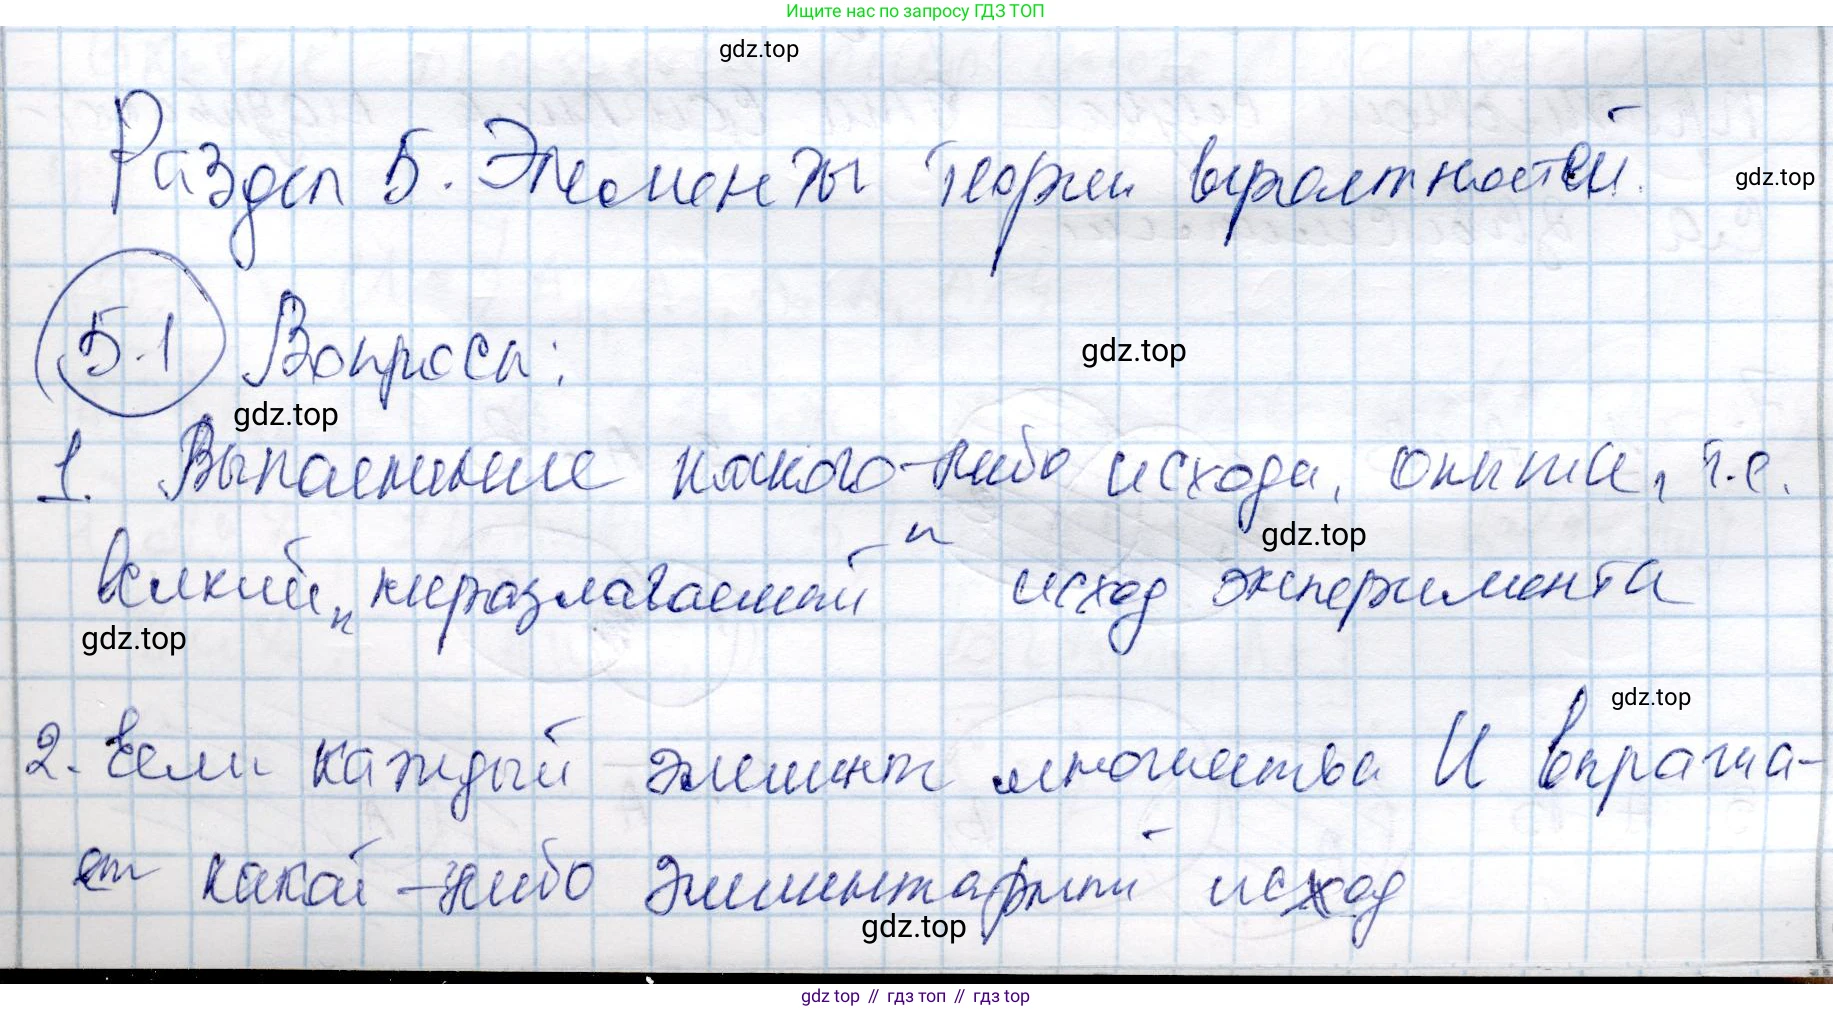 Ищите нас по запросу ГДЗ ТОП
gdz.top
Раздел 5. Элементы теории вероятностей.
gdz.top
5.1 Вопросы:
gdz.top
gdz.top
1. Выполнение какого-либо исхода, опыта, т.е.
gdz.top
всякий "неразлагаемый" исход эксперимента
gdz.top
gdz.top
2. Если каждый элемент множества И выража-
ет какой-либо элементарный исход
gdz.top
gdz top // гдз топ // гдз top